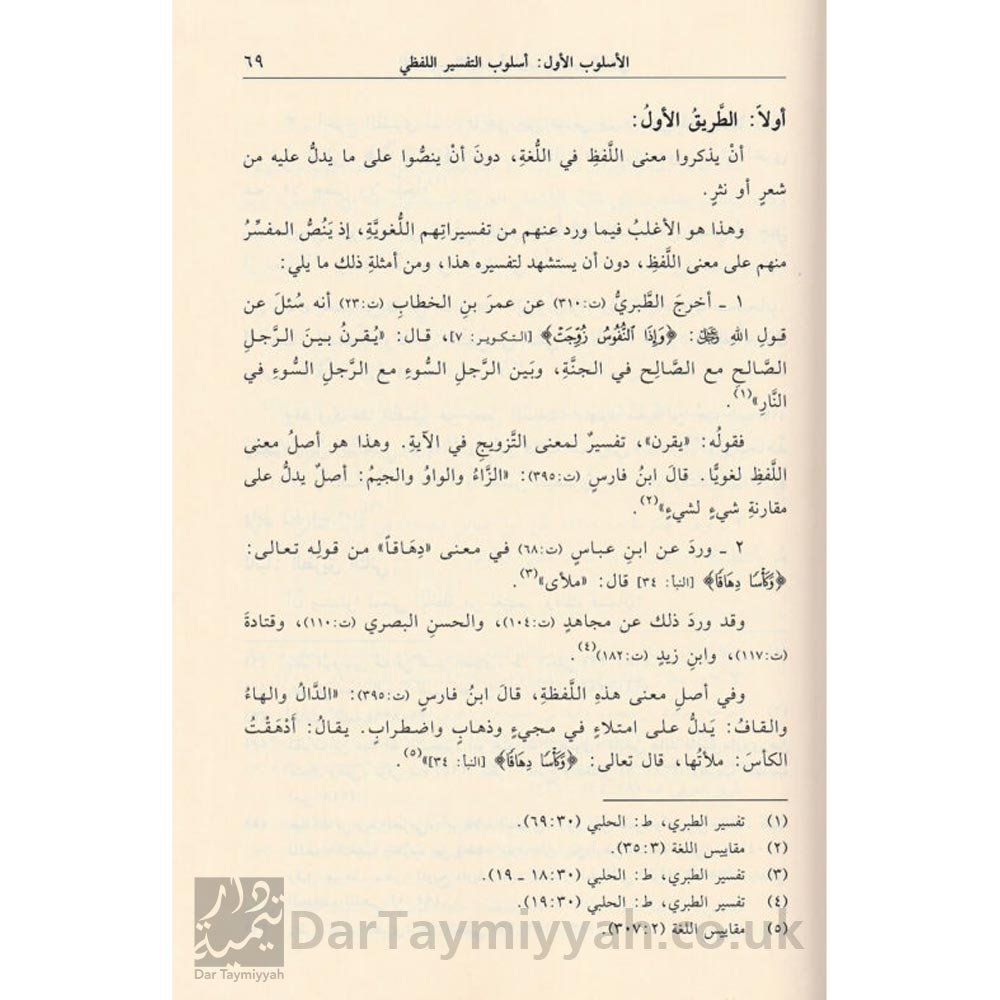 الأسلوب الأول: أسلوب التفسير اللفظي ٦٩
أولاً: الطَّريقُ الأولُ:
أنْ يذكروا معنى اللَّفظِ في اللُّغةِ، دونَ أنْ ينصُّوا على ما يدلُّ عليه من
شعرٍ أو نثرٍ.
وهذا هو الأغلبُ فيما ورد عنهم من تفسيراتِهم اللُّغويَّةِ، إذ يَنُصُّ المفسِّرُ
منهم على معنى اللَّفظِ، دون أن يستشهد لتفسيره هذا، ومن أمثلةِ ذلك ما يلي:
١ ـ أخرجَ الطَّبريُّ (ت:٣١٠) عن عمرَ بنِ الخطابِ (ت:٢٣) أنه سُئلَ عن
قولِ اللهِ ﷻ: ﴿وَإِذَا ٱلنُّفُوسُ زُوِّجَتْ﴾ [التكوير: ٧]، قال: «يُقرنُ بينَ الرَّجلِ
الصَّالحِ مع الصَّالِحِ في الجنَّةِ، وبَين الرَّجلِ السُّوءِ مع الرَّجلِ السُّوءِ في
النَّارِ»(١).
فقولُه: «يقرن»، تفسيرٌ لمعنى التَّزويجِ في الآيةِ. وهذا هو أصلُ معنى
اللَّفظِ لغويًّا. قالَ ابنُ فارسٍ (ت:٣٩٥): «الزَّاءُ والواوُ والجيمُ: أصلٌ يدلُّ على
مقارنةِ شيءٍ لشيءٍ»(٢).
٢ ـ وردَ عن ابنِ عباسٍ (ت:٦٨) في معنى «دِهَاقاً» من قولِه تعالى:
﴿وَكَأْسًا دِهَاقًا﴾ [النبأ: ٣٤] قال: «ملأى»(٣).
وقد وردَ ذلك عن مجاهدٍ (ت:١٠٤)، والحسنِ البصري (ت:١١٠)، وقتادةَ
(ت:١١٧)، وابنِ زيدٍ (ت:١٨٢)(٤).
وفي أصلِ معنى هذهِ اللَّفظةِ، قالَ ابنُ فارسَ (ت:٣٩٥): «الدَّالُ والهاءُ
والقافُ: يَدلُّ على امتلاءٍ في مجيءٍ وذهابٍ واضطرابٍ. يقالُ: أَدْهَقْتُ
الكأسَ: ملأتُها، قال تعالى: ﴿وَكَأْسًا دِهَاقًا﴾ [النبأ: ٣٤]»(٥).
(١) تفسير الطبري، ط: الحلبي (٦٩:٣٠).
(٢) مقاييس اللغة (٣٥:٣).
(٣) تفسير الطبري، ط: الحلبي (١٨:٣٠ ـ ١٩).
(٤) تفسير الطبري، ط: الحلبي (١٩:٣٠).
(٥) مقاييس اللغة (٣٠٧:٢).
دار تيمية
Dar Taymiyyah
DarTaymiyyah.co.uk